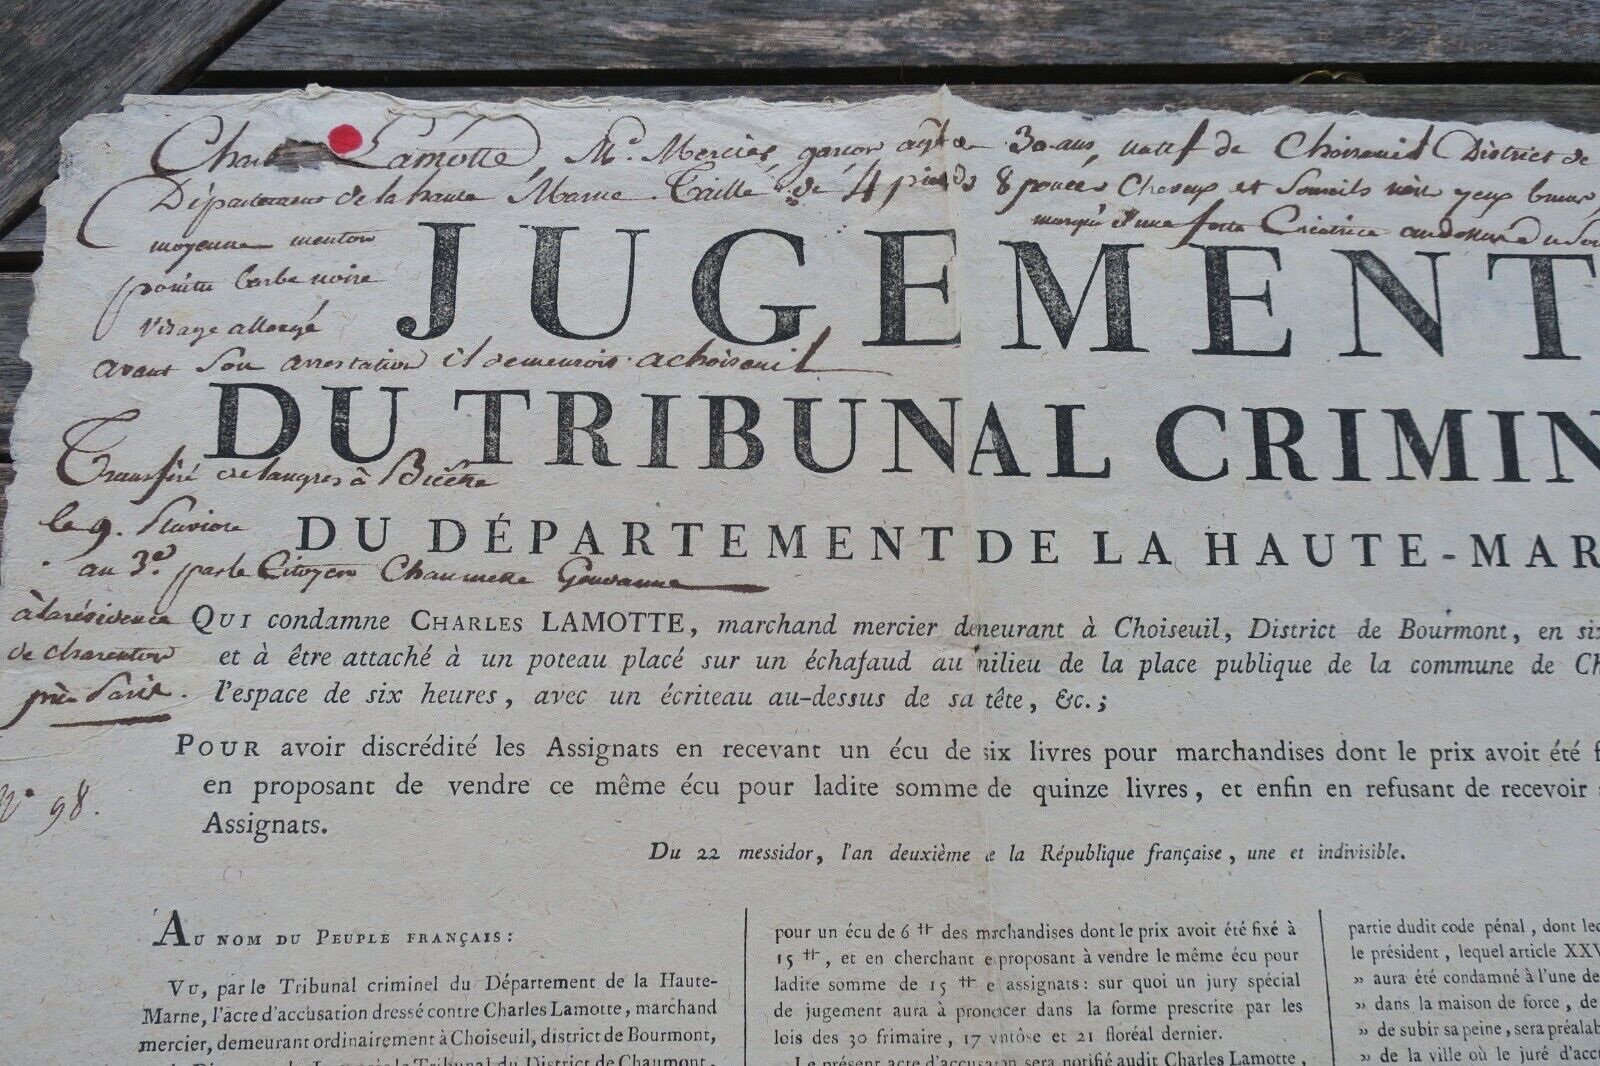 Charl Lamotte, Md. Mercier, garçon agé de 30 ans, natif de Choiseuil District de
Département de la haute Marne. Taille de 4 pieds 8 pouces Cheveux et Sourcils noir yeux bruns,
moyenne menton
marqué d'une forte Cicatrice audessus du
pointu barbe noire
visage allongé
avant son arrestation il demeuroit a choiseuil
JUGEMENT
DU TRIBUNAL CRIMIN
Transféré de langres à Bicêtre
le 9. Pluviose
DU DÉPARTEMENT DE LA HAUTE-MAR
au 3e. par le Citoyen Chaumette Gendarme
à la résidence
de charenton
près Paris.
QUI condamne CHARLES LAMOTTE, marchand mercier demeurant à Choiseuil, District de Bourmont, en six
et à être attaché à un poteau placé sur un échafaud au milieu de la place publique de la commune de Ch
l'espace de six heures, avec un écriteau au-dessus de sa tête, &c.;
POUR avoir discrédité les Assignats en recevant un écu de six livres pour marchandises dont le prix avoit été f
en proposant de vendre ce même écu pour ladite somme de quinze livres, et enfin en refusant de recevoir
Assignats.
N° 98.
Du 22 messidor, l'an deuxième e la République française, une et indivisible.
AU NOM DU PEUPLE FRANÇAIS:
VU, par le Tribunal criminel du Département de la Haute-
Marne, l'acte d'accusation dressé contre Charles Lamotte, marchand
mercier, demeurant ordinairement à Choiseuil, district de Bourmont,
le Tribunal du District de Chaumont
pour un écu de 6 ₶ des marchandises dont le prix avoit été fixé à
15 ₶, et en cherchant e proposant à vendre le même écu pour
ladite somme de 15 ₶ e assignats: sur quoi un jury spécial
de jugement aura à prononcer dans la forme prescrite par les
lois des 30 frimaire, 17 ventôse et 21 floréal dernier.
Le présent acte d'accusation sera notifié audit Charles Lamotte,
partie dudit code pénal, dont lec
le président, lequel article XXV
» aura été condamné à l'une de
» dans la maison de force, de
» de subir sa peine, sera préalab
» de la ville où le juré d'accu